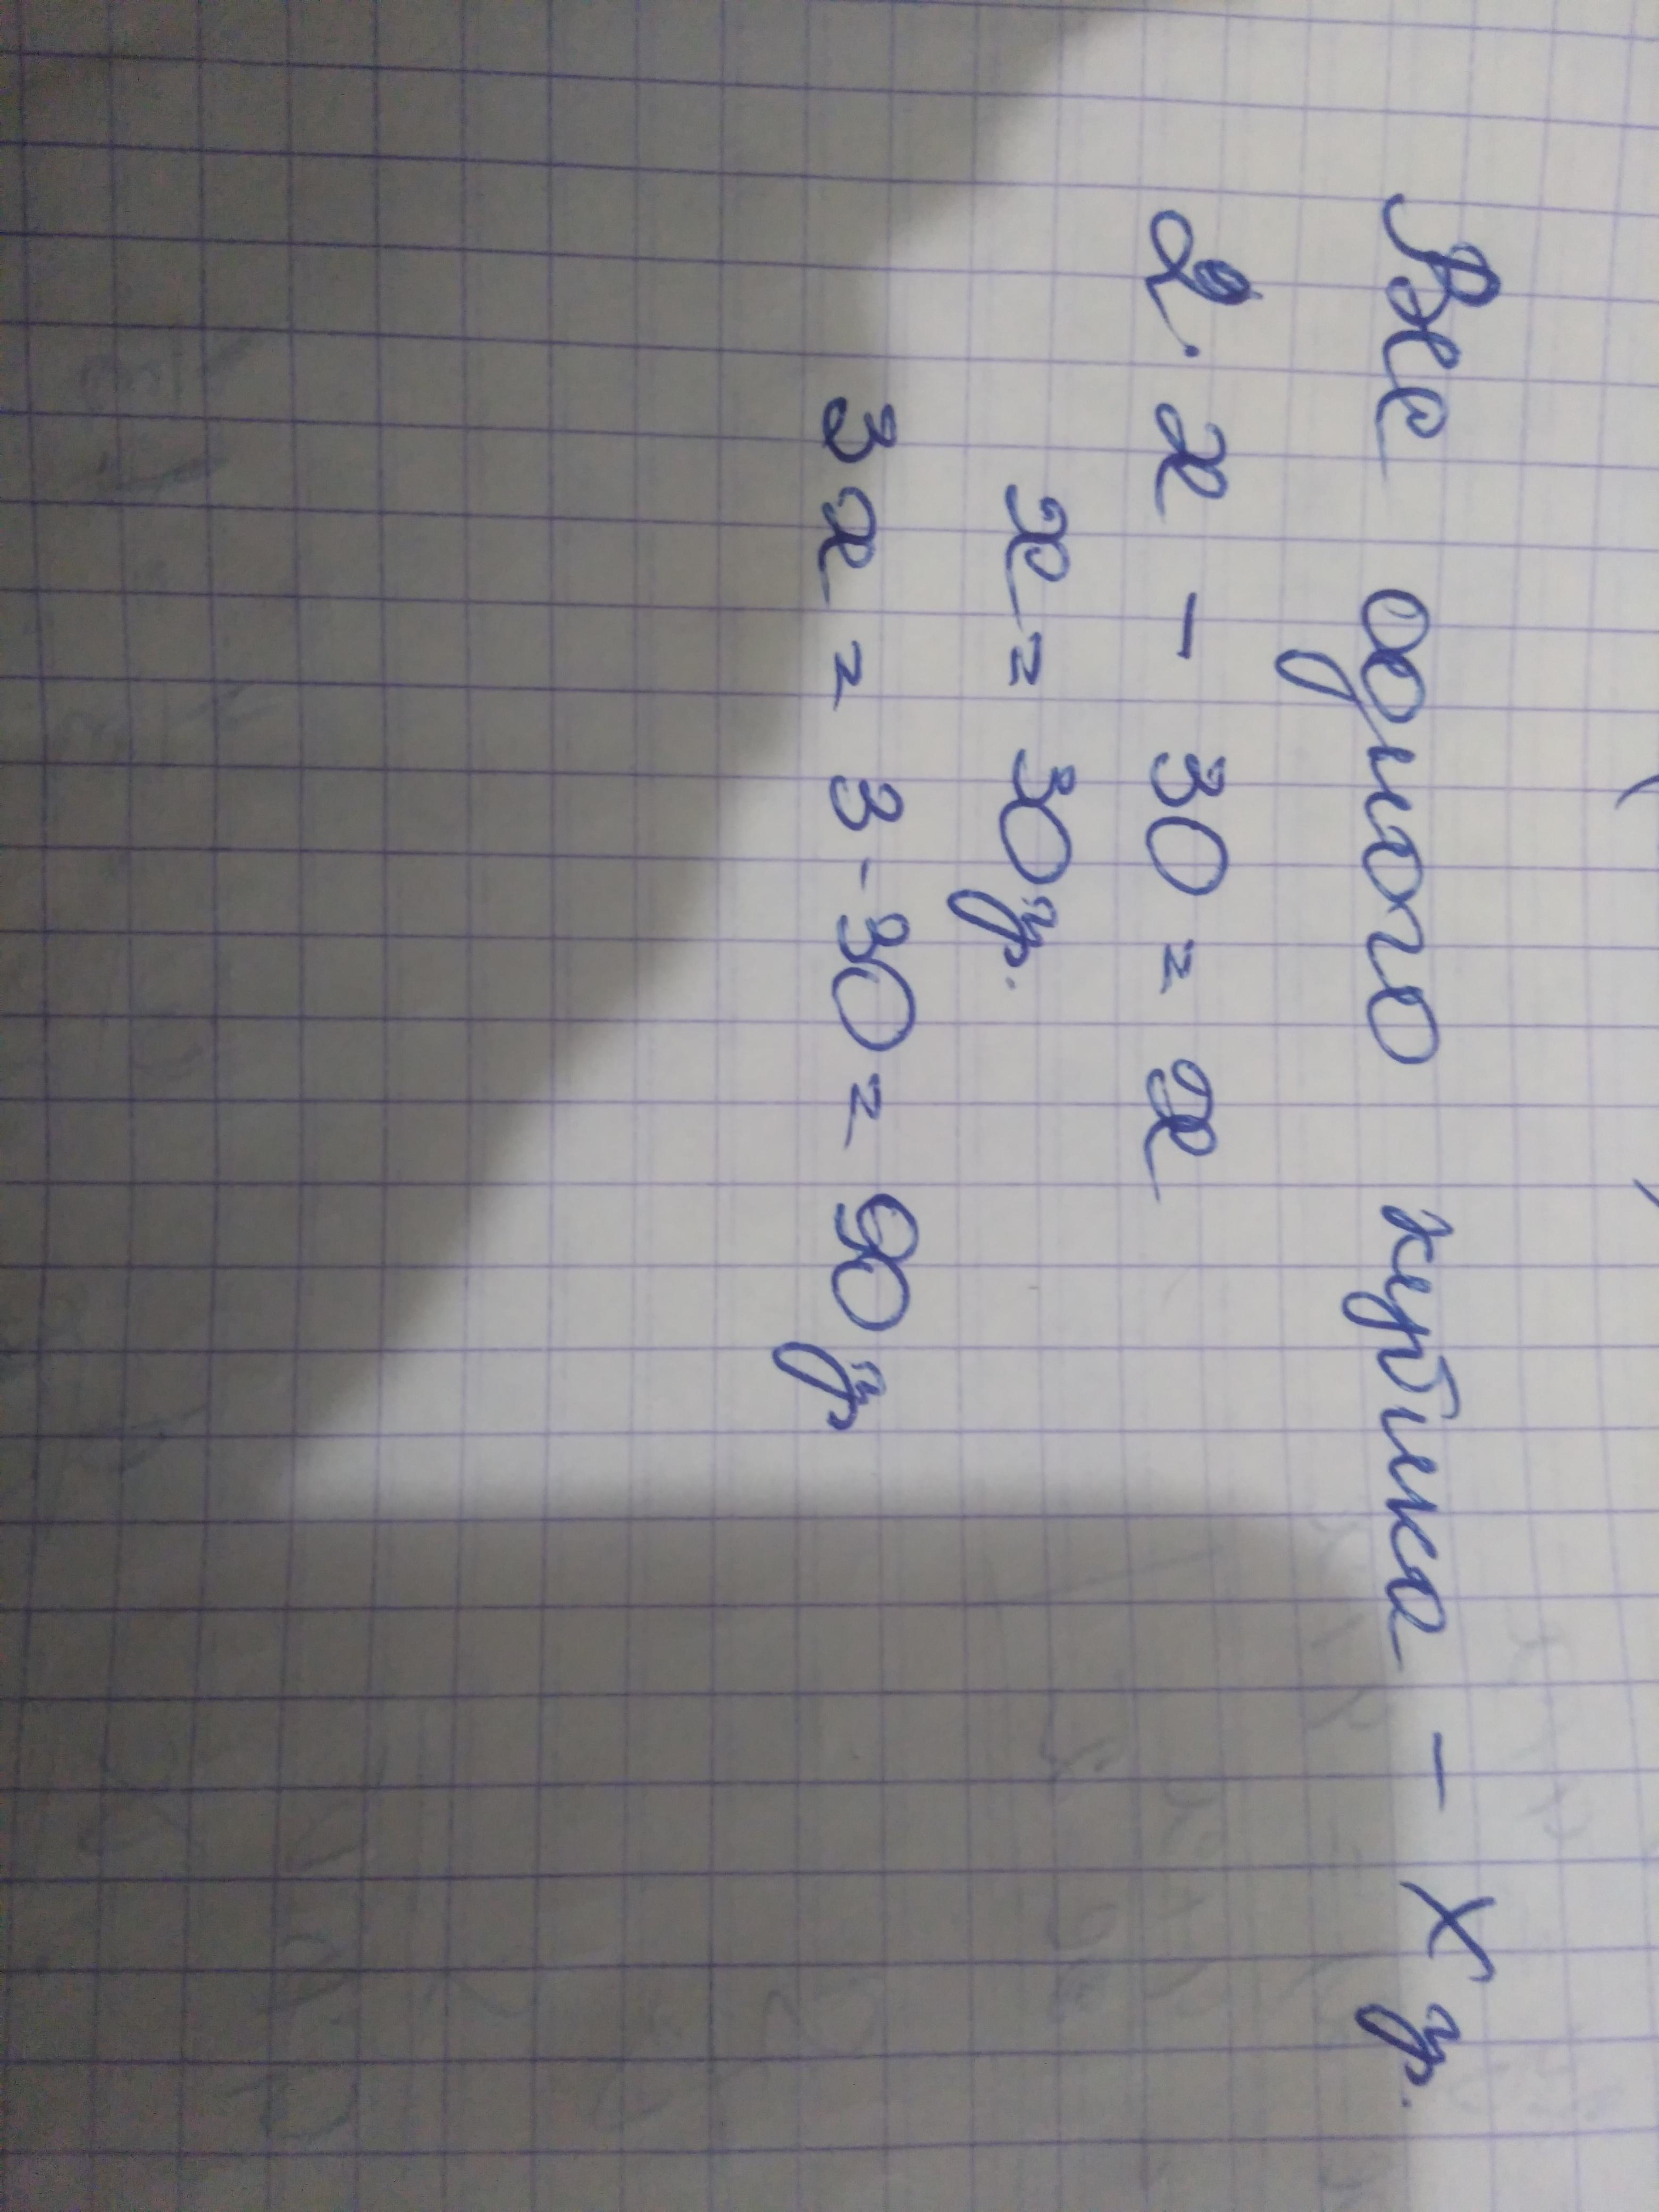 Вес одного кубика - X гр.
2 · x - 30 = x
x = 30 гр.
3x = 3-30 = 90 гр